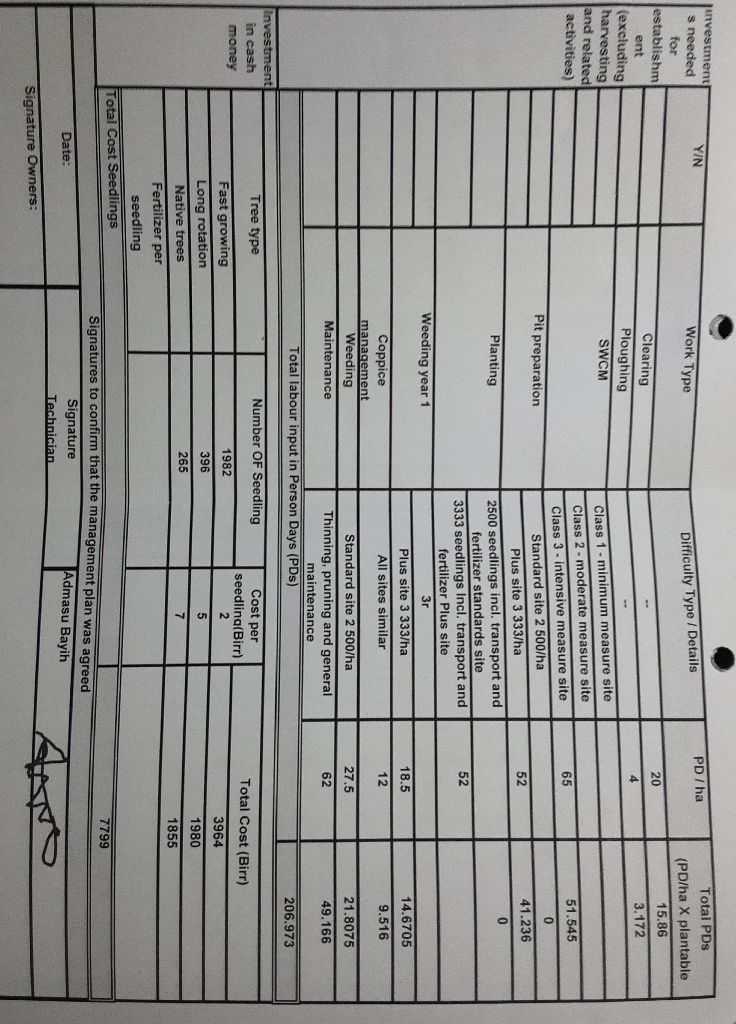 Investment
s needed
for
establishm
ent
(excluding
harvesting
and related
activities)
Y/N Work Type Difficulty Type / Details PD / ha Total PDs
(PD/ha X plantable
Clearing -- 20 15.86
Ploughing -- 4 3.172
SWCM Class 1 - minimum measure site
Class 2 - moderate measure site
Class 3 - intensive measure site 65 51.545
Pit preparation Standard site 2 500/ha 0
Plus site 3 333/ha 52 41.236
Planting 2500 seedlings incl. transport and
fertilizer standards site 0
3333 seedlings Incl. transport and
fertilizer Plus site 52
Weeding year 1 3r
Plus site 3 333/ha 18.5 14.6705
Coppice
management All sites similar 12 9.516
Weeding Standard site 2 500/ha 27.5 21.8075
Maintenance Thinning, pruning and general
maintenance 62 49.166
Total labour input in Person Days (PDs) 206.973
Investment
in cash
money
Tree type Number OF Seedling Cost per
seedling(Birr) Total Cost (Birr)
Fast growing 1982 2 3964
Long rotation 396 5 1980
Native trees 265 7 1855
Fertilizer per
seedling
Total Cost Seedlings 7799
Signatures to confirm that the management plan was agreed
Date: Signature
Technician Admasu Bayih
Signature Owners: